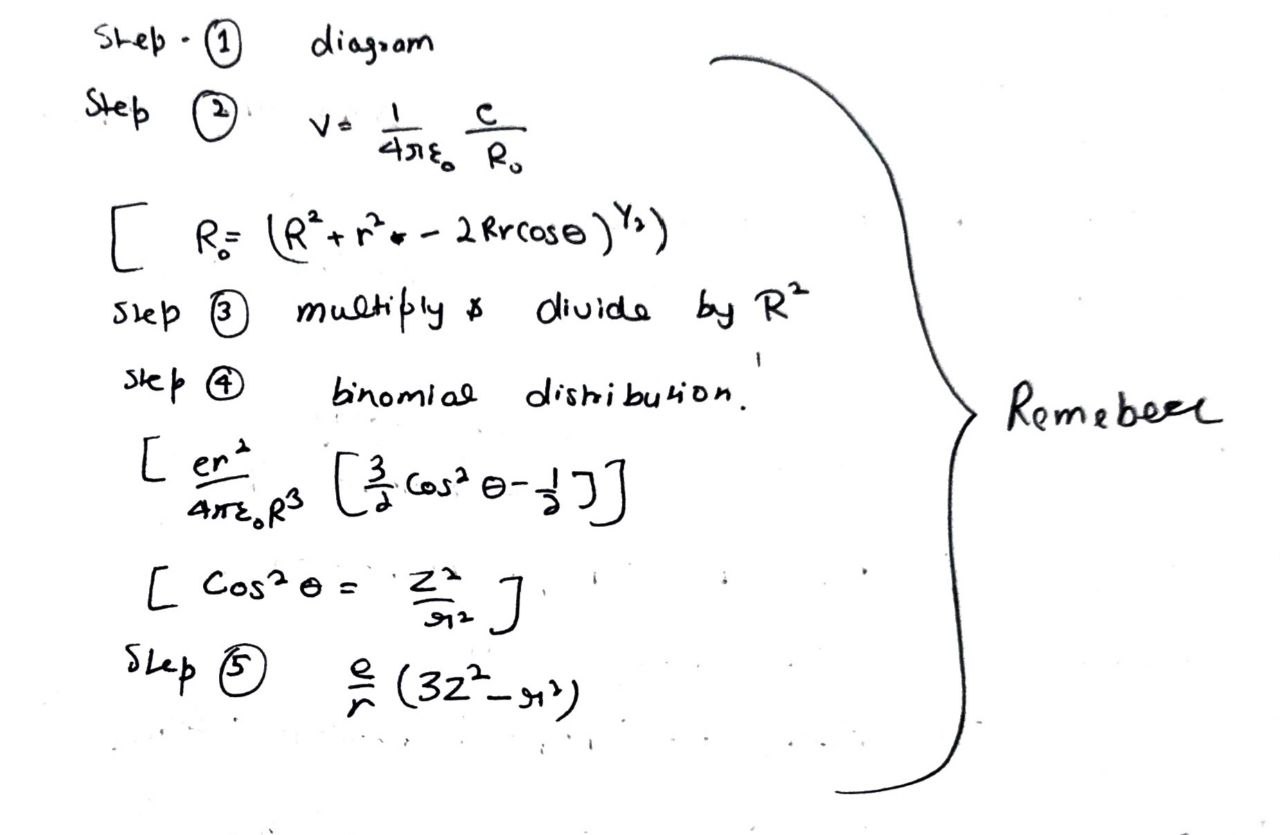 Step - ① diagram
Step ② V = 1/4πε₀ C/R₀
[ R₀ = (R² + r² - 2Rrcosθ)^1/2)
Step ③ multiply & divide by R²
Step ④ binomial distribution.
[ er²/4πε₀R³ [3/2 Cos²θ - 1/2]]
[ Cos²θ = Z²/r² ]
Step ⑤ e/r (3Z² - r²)
Remebeer